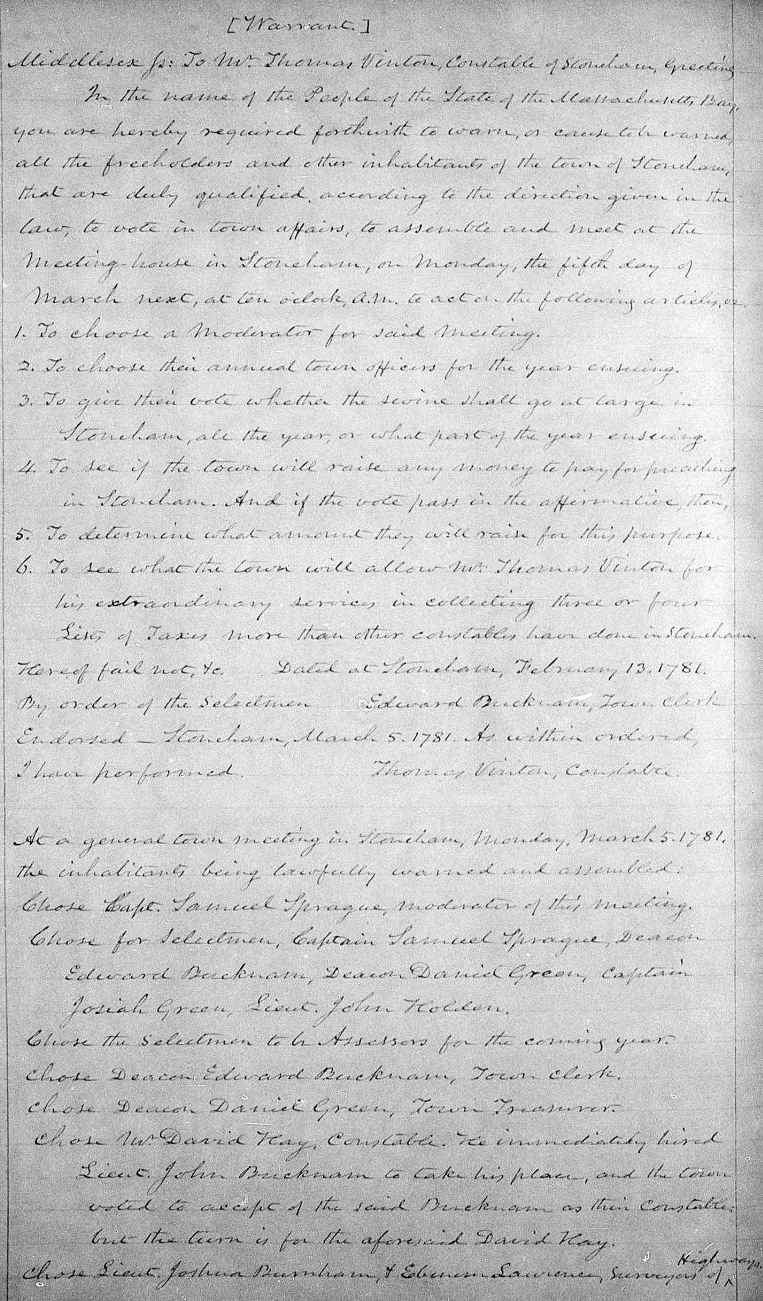 [Warrant.]
Middlesex ss: To Mr. Thomas Vinton, Constable of Stoneham, Greeting
In the name of the People of the State of the Massachusetts Bay,
you are hereby required forthwith to warn, or cause to be warned,
all the freeholders and other inhabitants of the town of Stoneham,
that are duly qualified, according to the direction given in the
law, to vote in town affairs, to assemble and meet at the
Meeting-house in Stoneham, on Monday, the fifth day of
March next, at ten o'clock, A.M. to act on the following articles,
1. To choose a Moderator for said meeting.
2. To choose their annual town officers for the year ensuing.
3. To give their vote whether the swine shall go at large in
Stoneham, all the year, or what part of the year ensuing.
4. To see if the town will raise any money to pay for preaching
in Stoneham. And if the vote pass in the affirmative, then,
5. To determine what amount they will raise for this purpose.
6. To see what the town will allow Mr. Thomas Vinton for
his extraordinary services in collecting three or four
Lists of Taxes more than other constables have done in Stoneham.
Hereof fail not, &c. Dated at Stoneham, February 13, 1781.
By order of the Selectmen Edward Bucknam, Town Clerk
Endorsed — Stoneham, March 5. 1781. As within ordered,
I have performed. Thomas Vinton, Constable.
At a general town meeting in Stoneham, Monday, March 5. 1781,
the inhabitants being lawfully warned and assembled:
Chose Capt. Samuel Sprague, moderator of this meeting.
Chose for Selectmen, Captain Samuel Sprague, Deacon
Edward Bucknam, Deacon Daniel Green, Captain
Josiah Green, Lieut. John Holden.
Chose the Selectmen to be Assessors for the coming year.
Chose Deacon Edward Bucknam, Town Clerk.
Chose Deacon Daniel Green, Town Treasurer.
Chose Mr. David Hay, Constable. He immediately hired
Lieut. John Bucknam to take his place, and the town
voted to accept of the said Bucknam as their Constable:
but the turn is for the aforesaid David Hay.
Chose Lieut. Joshua Burnham, & Ebenezer Lawrence, Surveyors of Highways.